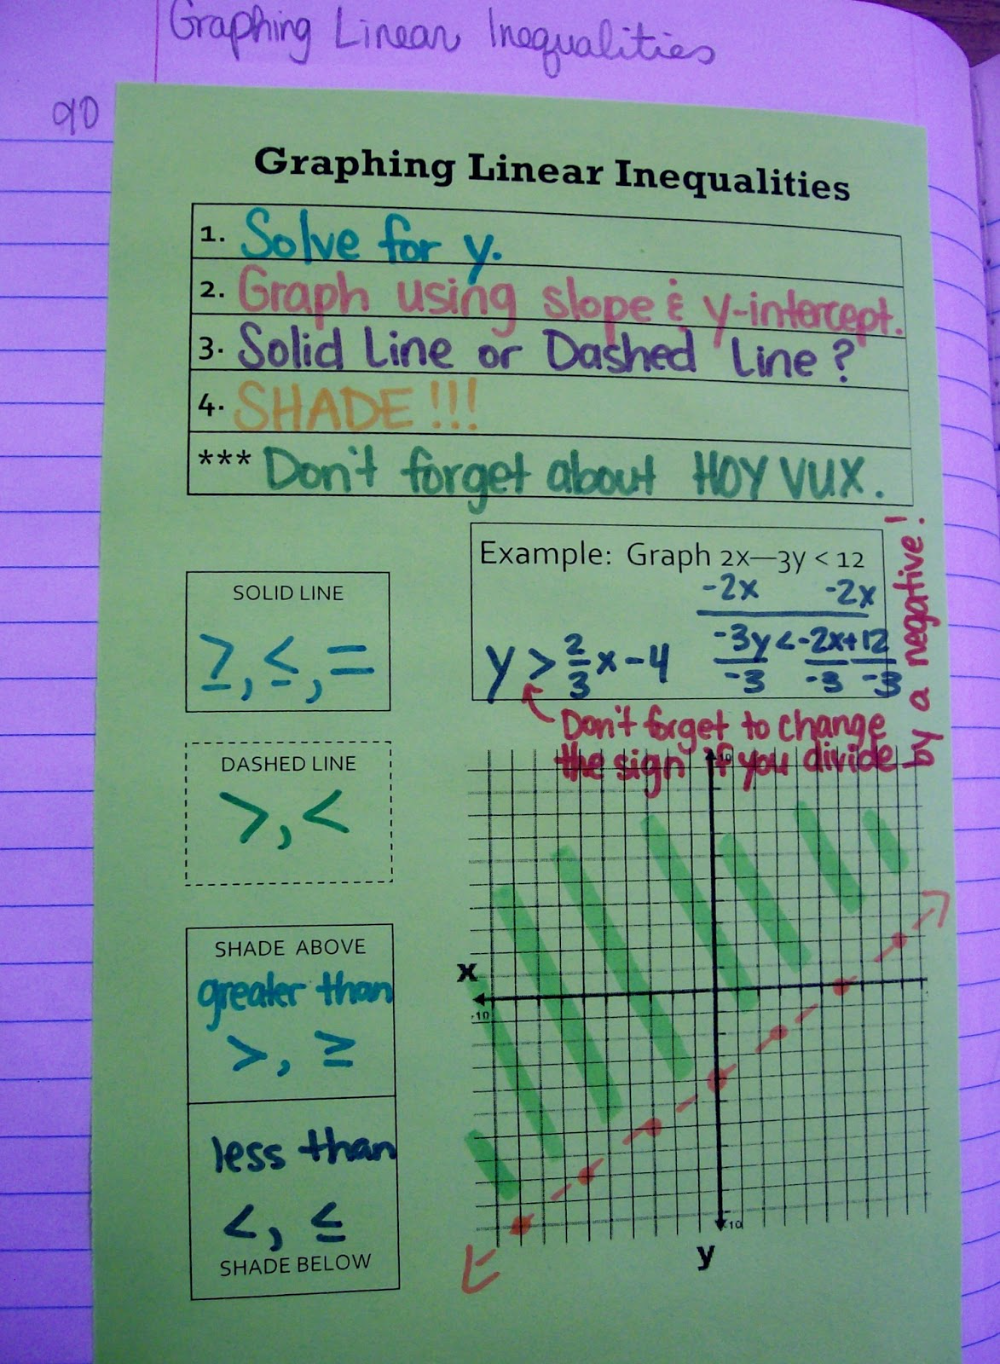 Graphing Linear Inequalities
90
Graphing Linear Inequalities
1. Solve for y.
2. Graph using slope & y-intercept.
3. Solid Line or Dashed Line?
4. SHADE!!!
*** Don't forget about HOY VUX.
SOLID LINE
≥, ≤, =
DASHED LINE
>, <
SHADE ABOVE
greater than
>, ≥
less than
<, ≤
SHADE BELOW
Example: Graph 2x—3y < 12
-2x -2x
-3y < -2x+12
-3 -3 -3
y > 2/3 x - 4
Don't forget to change
the sign if you divide
by a negative!
10
x
-10
-10
y